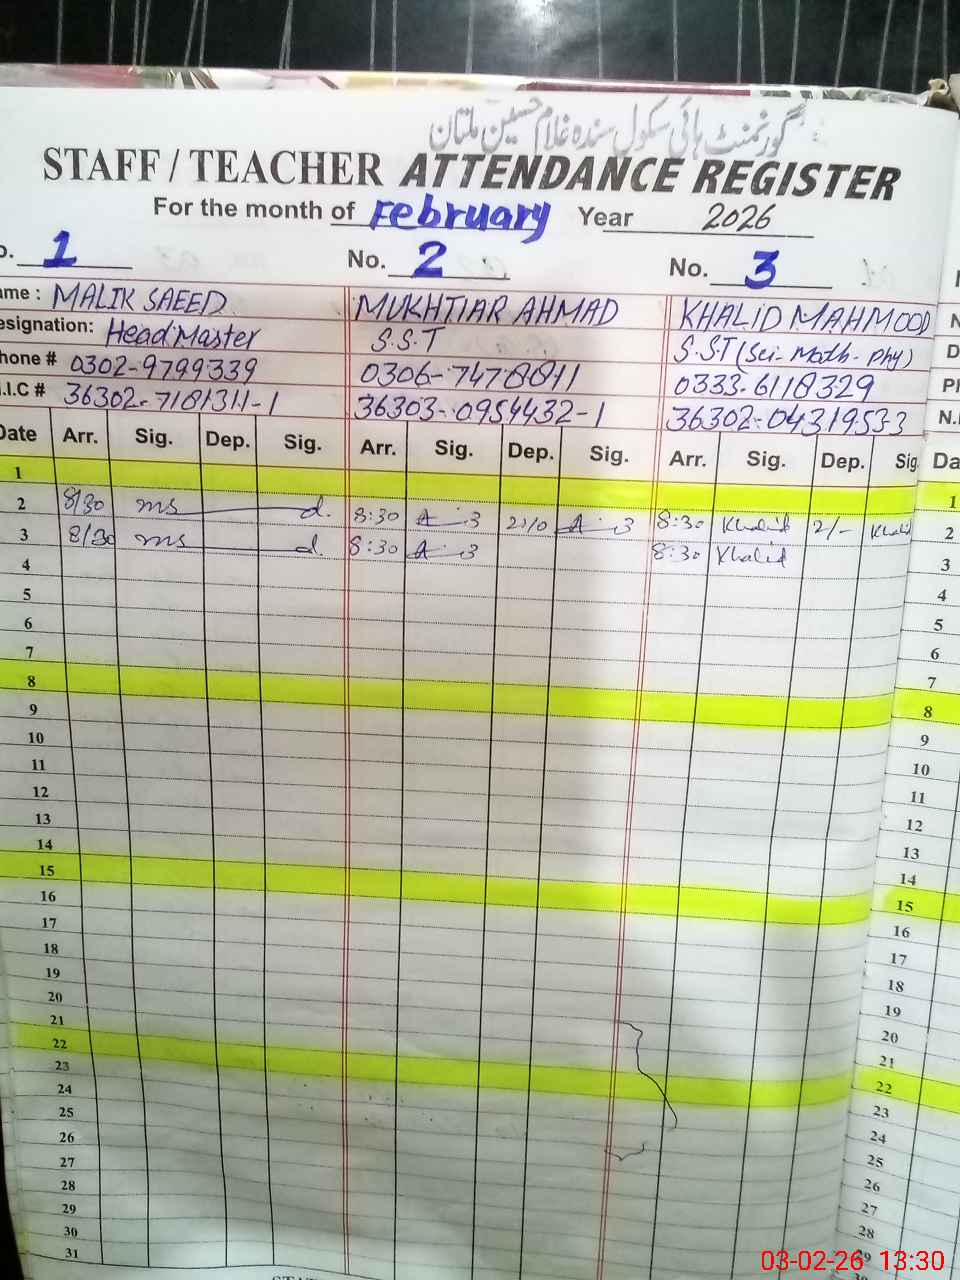 گورنمنٹ ہائی سکول سندہ غلام حسین ملتان
STAFF / TEACHER ATTENDANCE REGISTER
For the month of February Year 2026
1 No. 2 No. 3
ame : MALIK SAEED MUKHTIAR AHMAD KHALID MAHMOOD
esignation: Head Master S.S.T S.ST (Sci- Math- Phy)
hone # 0302-9799339 0306-7478811 0333-6118329
.I.C # 36302-7181311-1 36303-0954432-1 36302-0431953-3
Date Arr. Sig. Dep. Sig. Arr. Sig. Dep. Sig. Arr. Sig. Dep. Sig. Da
1 1
2 8/30 ms d. 8:30 8:30 Khalid 2/- Khalid 2
3 8/30 ms d. 8:30 8:30 Khalid 3
4 4
5 5
6 6
7 7
8 8
9 9
10 10
11 11
12 12
13 13
14 14
15 15
16 16
17 17
18 18
19 19
20 20
21 21
22 22
23 23
24 24
25 25
26 26
27 27
28 28
29
30
31
03-02-26 13:30